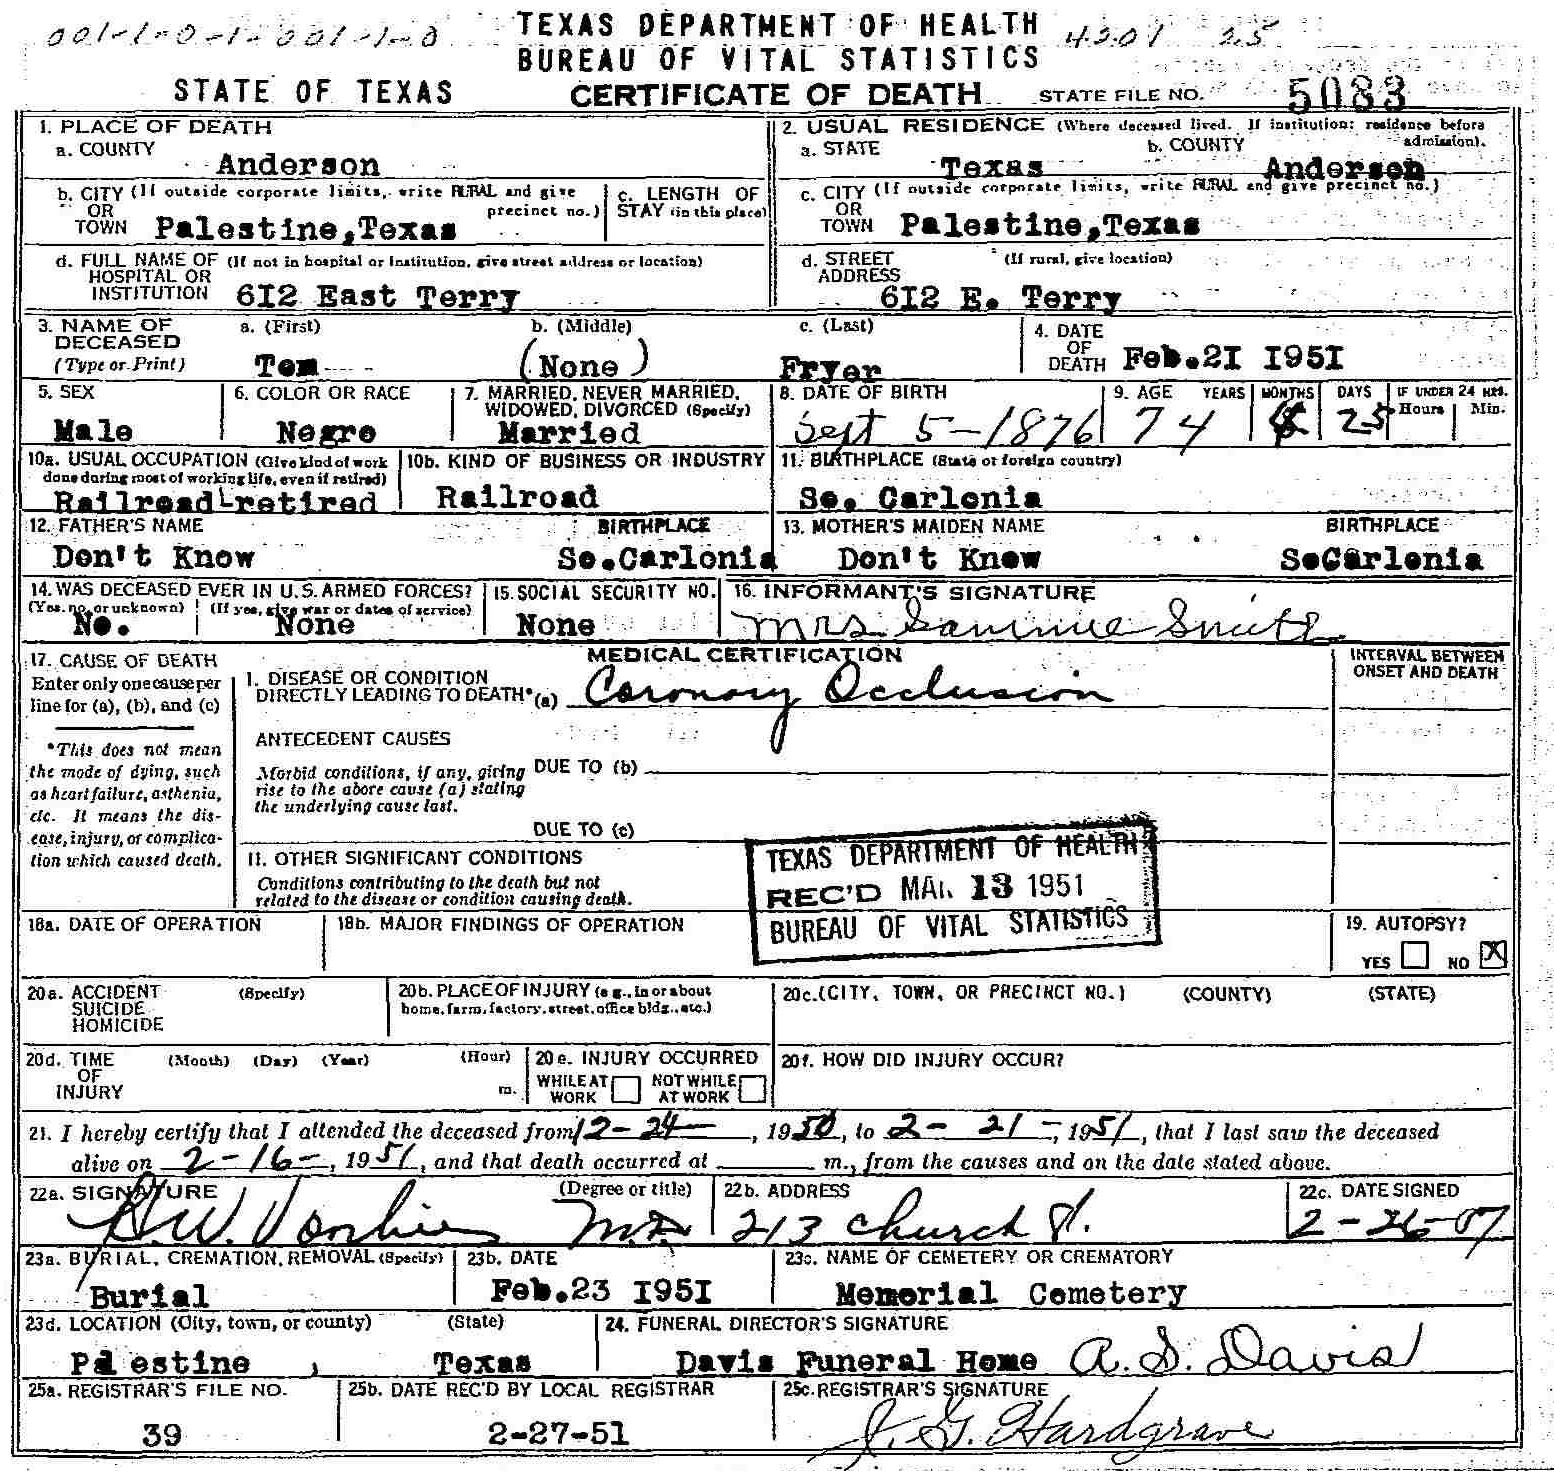 001-1-0-1-001-1-0
TEXAS DEPARTMENT OF HEALTH
4201 25
BUREAU OF VITAL STATISTICS
STATE OF TEXAS CERTIFICATE OF DEATH STATE FILE NO. 5083
1. PLACE OF DEATH
a. COUNTY
Anderson
2. USUAL RESIDENCE (Where deceased lived. If institution: residence before admission).
a. STATE b. COUNTY
Texas Anderson
b. CITY (If outside corporate limits, write RURAL and give precinct no.)
OR
TOWN Palestine,Texas
c. LENGTH OF
STAY (in this place)
c. CITY (If outside corporate limits, write RURAL and give precinct no.)
OR
TOWN Palestine,Texas
d. FULL NAME OF (If not in hospital or institution, give street address or location)
HOSPITAL OR
INSTITUTION 6I2 East Terry
d. STREET (If rural, give location)
ADDRESS
6I2 E. Terry
3. NAME OF a. (First) b. (Middle) c. (Last)
DECEASED
(Type or Print) Tom (None) Fryer
4. DATE
OF
DEATH Feb.2I I95I
5. SEX
Male
6. COLOR OR RACE
Negro
7. MARRIED, NEVER MARRIED,
WIDOWED, DIVORCED (Specify)
Married
8. DATE OF BIRTH
Sept 5-1876
9. AGE YEARS MONTHS DAYS IF UNDER 24 HRS.
Hours Min.
74 25
10a. USUAL OCCUPATION (Give kind of work
done during most of working life, even if retired)
Railroad-retired
10b. KIND OF BUSINESS OR INDUSTRY
Railroad
11. BIRTHPLACE (State or foreign country)
So. Carlonia
12. FATHER'S NAME BIRTHPLACE
Don't Know So.Carlonia
13. MOTHER'S MAIDEN NAME BIRTHPLACE
Don't Know SoCarlonia
14. WAS DECEASED EVER IN U.S. ARMED FORCES?
(Yes, no, or unknown) (If yes, give war or dates of service)
No. None
15. SOCIAL SECURITY NO.
None
16. INFORMANT'S SIGNATURE
Mrs. Sammie Smith
17. CAUSE OF DEATH
Enter only one cause per
line for (a), (b), and (c)
*This does not mean
the mode of dying, such
as heart failure, asthenia,
etc. It means the dis-
ease, injury, or complica-
tion which caused death.
MEDICAL CERTIFICATION
INTERVAL BETWEEN
ONSET AND DEATH
I. DISEASE OR CONDITION
DIRECTLY LEADING TO DEATH* (a) Coronary Occlusion
ANTECEDENT CAUSES
Morbid conditions, if any, giving
rise to the above cause (a) stating
the underlying cause last.
DUE TO (b)
DUE TO (c)
II. OTHER SIGNIFICANT CONDITIONS
Conditions contributing to the death but not
related to the disease or condition causing death.
TEXAS DEPARTMENT OF HEALTH
REC'D MAR 13 1951
BUREAU OF VITAL STATISTICS
18a. DATE OF OPERATION
18b. MAJOR FINDINGS OF OPERATION
19. AUTOPSY?
YES NO X
20a. ACCIDENT (Specify)
SUICIDE
HOMICIDE
20b. PLACE OF INJURY (e.g., in or about
home, farm, factory, street, office bldg., etc.)
20c. (CITY, TOWN, OR PRECINCT NO.) (COUNTY) (STATE)
20d. TIME (Month) (Day) (Year) (Hour)
OF
INJURY m.
20e. INJURY OCCURRED
WHILE AT WORK NOT WHILE AT WORK
20f. HOW DID INJURY OCCUR?
21. I hereby certify that I attended the deceased from 12-24-, 1950, to 2-21-, 1951, that I last saw the deceased
alive on 2-16-, 1951, and that death occurred at m., from the causes and on the date stated above.
22a. SIGNATURE (Degree or title)
M.D.
22b. ADDRESS
213 Church St.
22c. DATE SIGNED
23a. BURIAL, CREMATION, REMOVAL (Specify)
Burial
23b. DATE
Feb.23 I95I
23c. NAME OF CEMETERY OR CREMATORY
Memorial Cemetery
23d. LOCATION (City, town, or county) (State)
Palestine , Texas
24. FUNERAL DIRECTOR'S SIGNATURE
Davis Funeral Home A. S. Davis
25a. REGISTRAR'S FILE NO.
39
25b. DATE REC'D BY LOCAL REGISTRAR
2-27-51
25c. REGISTRAR'S SIGNATURE
J. G. Hardgrave